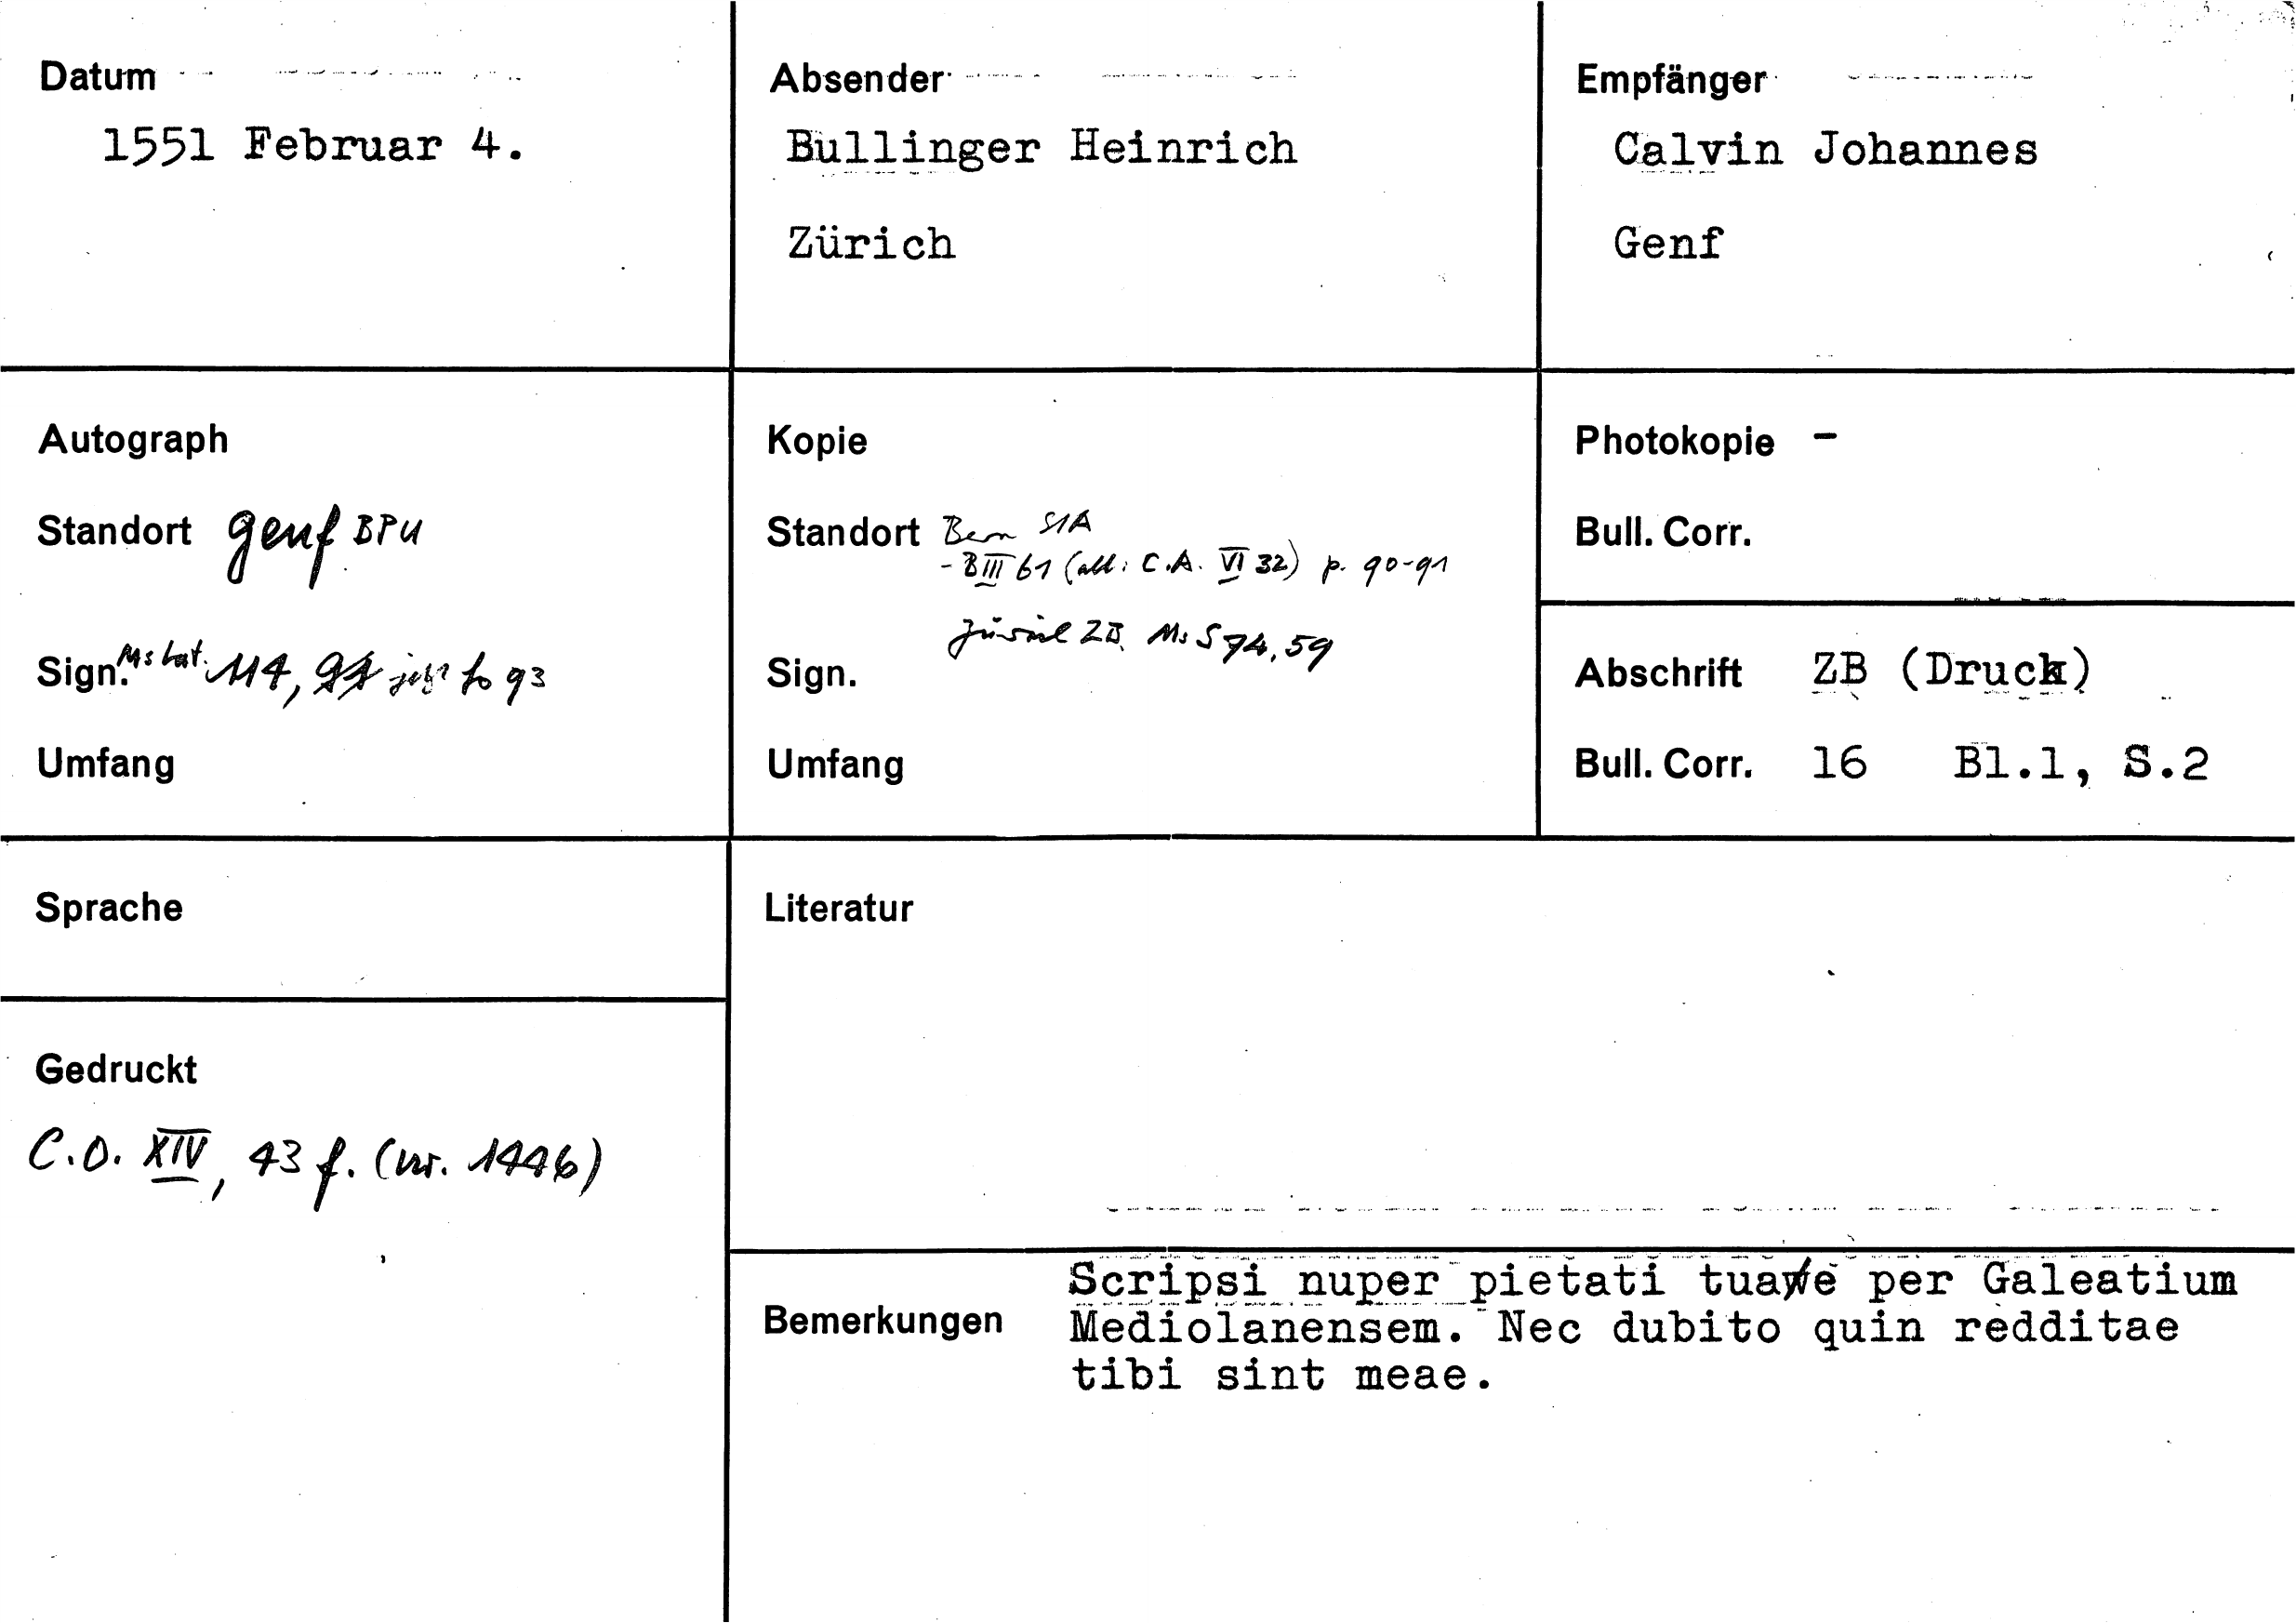 Datum
1551 Februar 4.
Absender
Bullinger Heinrich
Zürich
Empfänger
Calvin Johannes
Genf
Autograph
Standort Genf BPU
Sign. Ms lat. 114, jetzt fo 93
Umfang
Kopie
Standort Bern StA
- B III 61 (alt: C.A. VI 32) p. 90-91
Zürich ZB, Ms S 74, 59
Sign.
Umfang
Photokopie -
Bull. Corr.
Abschrift ZB (Druck)
Bull. Corr. 16 Bl.1, S.2
Sprache
Gedruckt
C.O. XIV, 43 f. (nr. 1446)
Literatur
Bemerkungen
Scripsi nuper pietati tuae per Galeatium
Mediolanensem. Nec dubito quin redditae
tibi sint meae.